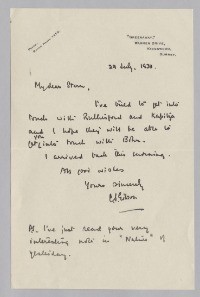 "GREENWAY,"
WARREN DRIVE,
KINGSWOOD,
SURREY.
29 July, 1938.
My dear
I've tried to get into
touch with Rutherford and Kapitza
and I hope they will be able to
get you into touch with Bohr.
I arrived back this morning.
All good wishes
Yours sincerely
PS. I've just read your very
interesting note in "Nature" of
yesterday.